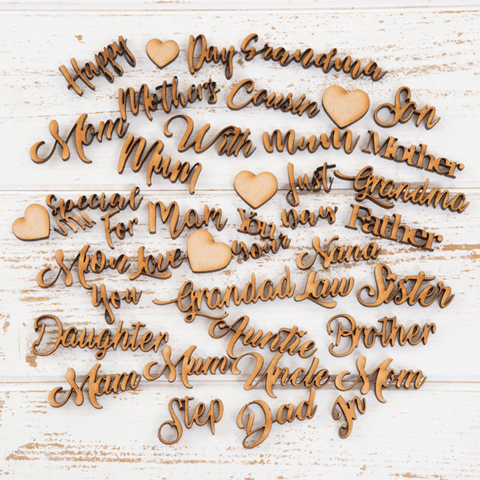 Happy Day Grandma
Mothers Cousin Son
Mom With Mum Mother
Mum Just Grandma
Special For Mam You Days Father
Mom Love Your Nana
You Grandad Law Sister
Daughter Auntie Brother
Mam Mum Uncle Mom
Step Dad In